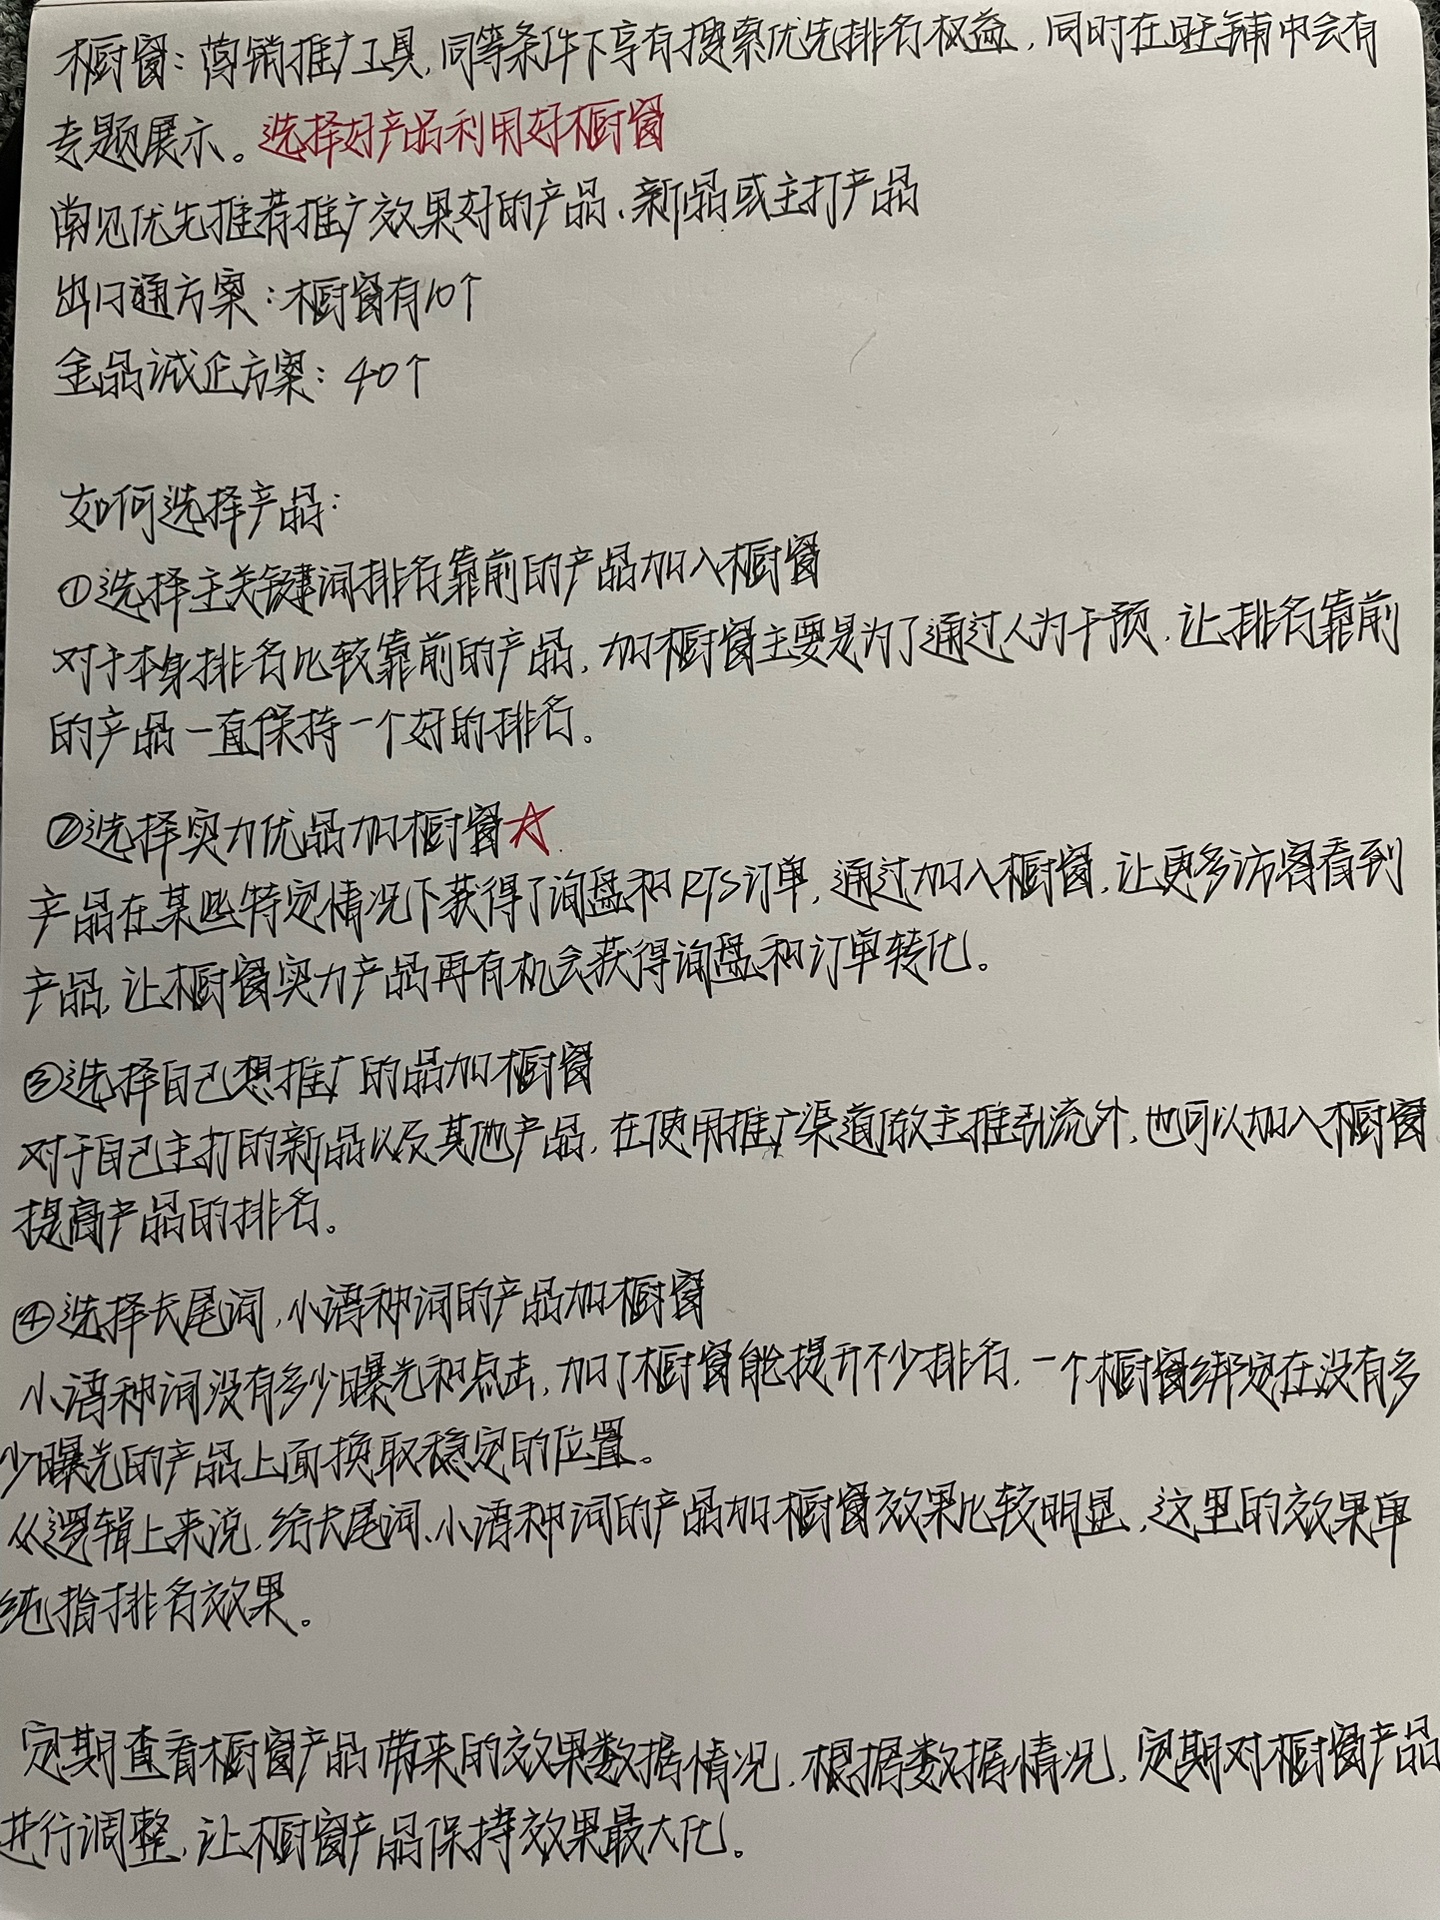 橱窗：营销推广工具，同等条件下享有搜索优先排名权益，同时在旺铺中会有
专题展示。选择好产品利用好橱窗
常见优先推荐推广效果好的产品、新品或主打产品
出口通方案：橱窗有10个
金品诚企方案：40个
如何选择产品：
①选择主关键词排名靠前的产品加入橱窗
对于本身排名比较靠前的产品，加橱窗主要是为了通过人为干预，让排名靠前
的产品一直保持一个好的排名。
②选择实力优品加橱窗☆
产品在某些特定情况下获得了询盘和RTS订单，通过加入橱窗，让更多访客看到
产品，让橱窗实力产品再有机会获得询盘和订单转化。
③选择自己想推广的品加橱窗
对于自己主打的新品以及其他产品，在使用推广渠道做主推引流外，也可以加入橱窗
提高产品的排名。
④选择长尾词，小语种词的产品加橱窗
小语种词没有多少曝光和点击，加了橱窗能提升不少排名，一个橱窗绑定在没有多
少曝光的产品上面换取稳定的位置。
从逻辑上来说，给长尾词、小语种词的产品加橱窗效果比较明显，这里的效果单
纯指排名效果。
定期查看橱窗产品带来的效果数据情况，根据数据情况，定期对橱窗产品
进行调整，让橱窗产品保持效果最大化。